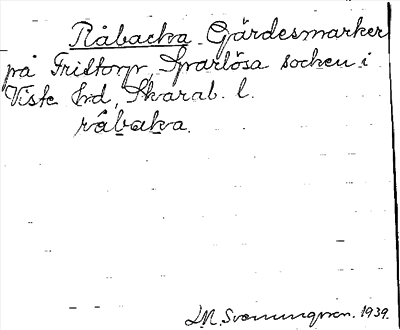 Råbacka Gärdesmarker
på Fristorp, Sparlösa socken i
Viste hd, Skarab. l.
råbaka.
1939.